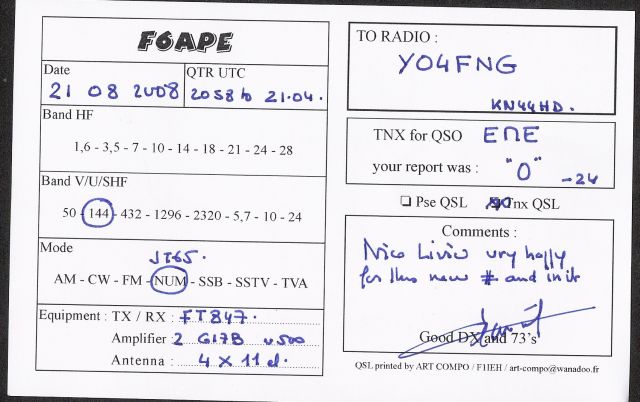 F6APE
Date
QTR UTC
21 08 2008
2058 to 21.04.
Band HF
1,6 - 3,5 - 7 - 10 - 14 - 18 - 21 - 24 - 28
Band V/U/SHF
50 - 144 - 432 - 1296 - 2320 - 5,7 - 10 - 24
Mode
JT65.
AM - CW - FM - NUM - SSB - SSTV - TVA
Equipment : TX / RX : FT847.
Amplifier 2 GI7B
Antenna : 4 X 11 el.
TO RADIO :
YO4FNG
KN44HD.
TNX for QSO EME
your report was : "O" -24
Pse QSL Tnx QSL
Comments :
Nice Liviu very happy
for this new # and init
Good DX and 73's
QSL printed by ART COMPO / F1IEH / art-compo@wanadoo.fr